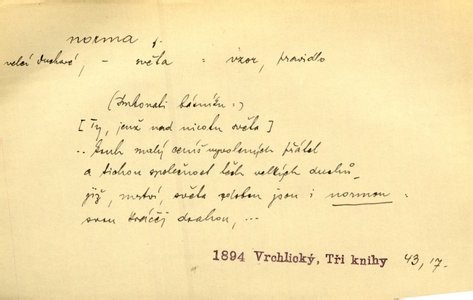 norma f.
velcí duchové, – světa = vzor, pravidlo
(Inkonali básníku:)
[Ty, jenž nad nicotu světa]
.. kruh malý ceníš vyvolených přátel
a tichou společnost těch velkých duchů,
již, mrtví, světa jsou i normou
svou drahou, ...
1894 Vrchlický, Tři knihy 43, 17.